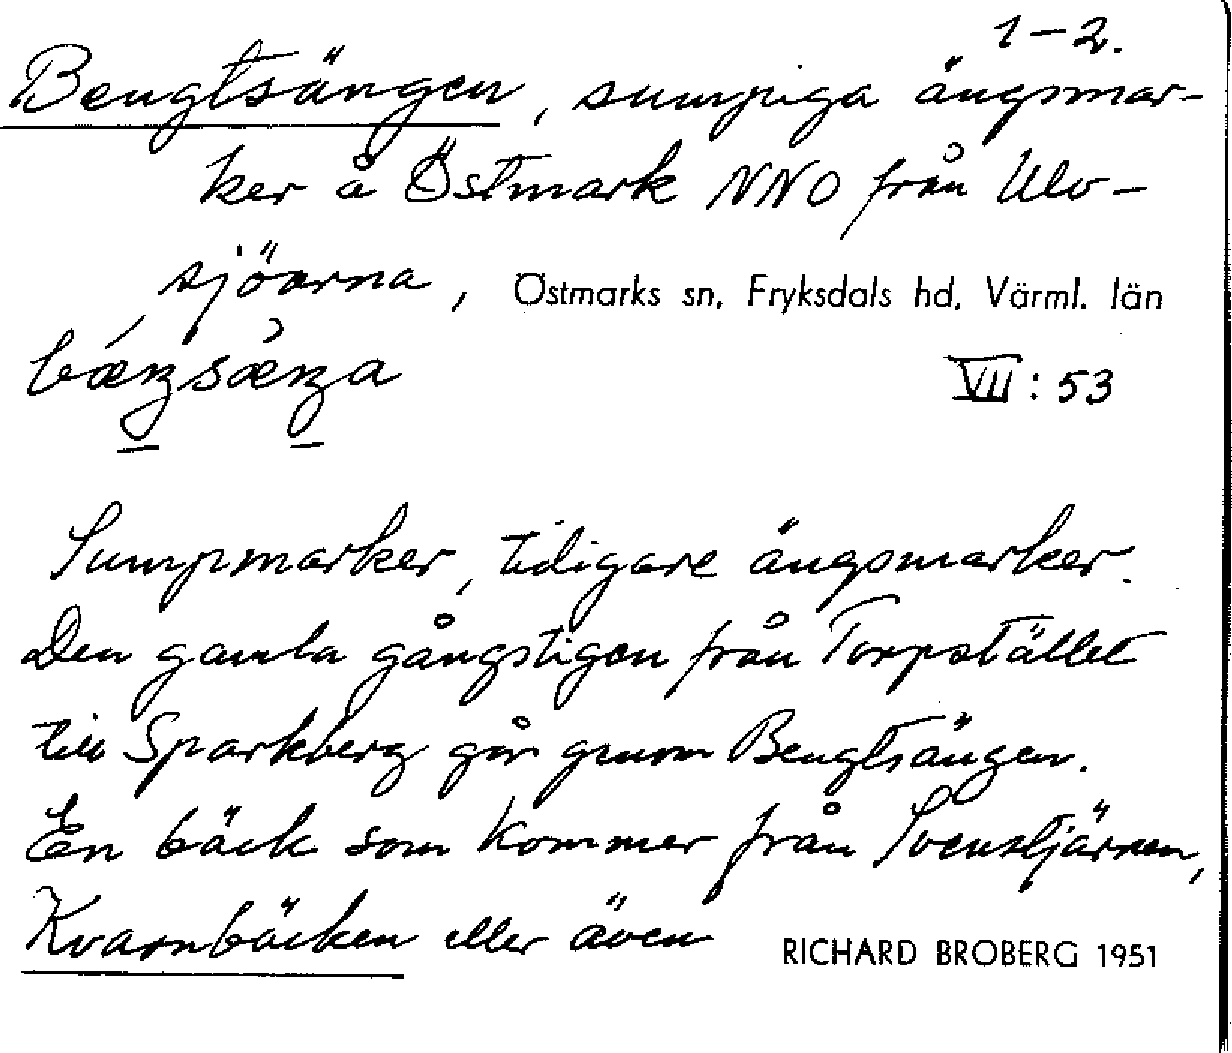 1-2.
Bengtsängen, sumpiga ängsmar-
ker å Östmark NNO från Ulv-
sjöarna, Östmarks sn, Fryksdals hd, Värml. län
VII: 53
Sumpmarker, tidigare ängsmarker.
Den gamla gångstigen från Torpstället
till Sparkberg går genom Bengtsängen.
En bäck som kommer från Svenstjärnen,
Kvarnbäcken eller även
RICHARD BROBERG 1951